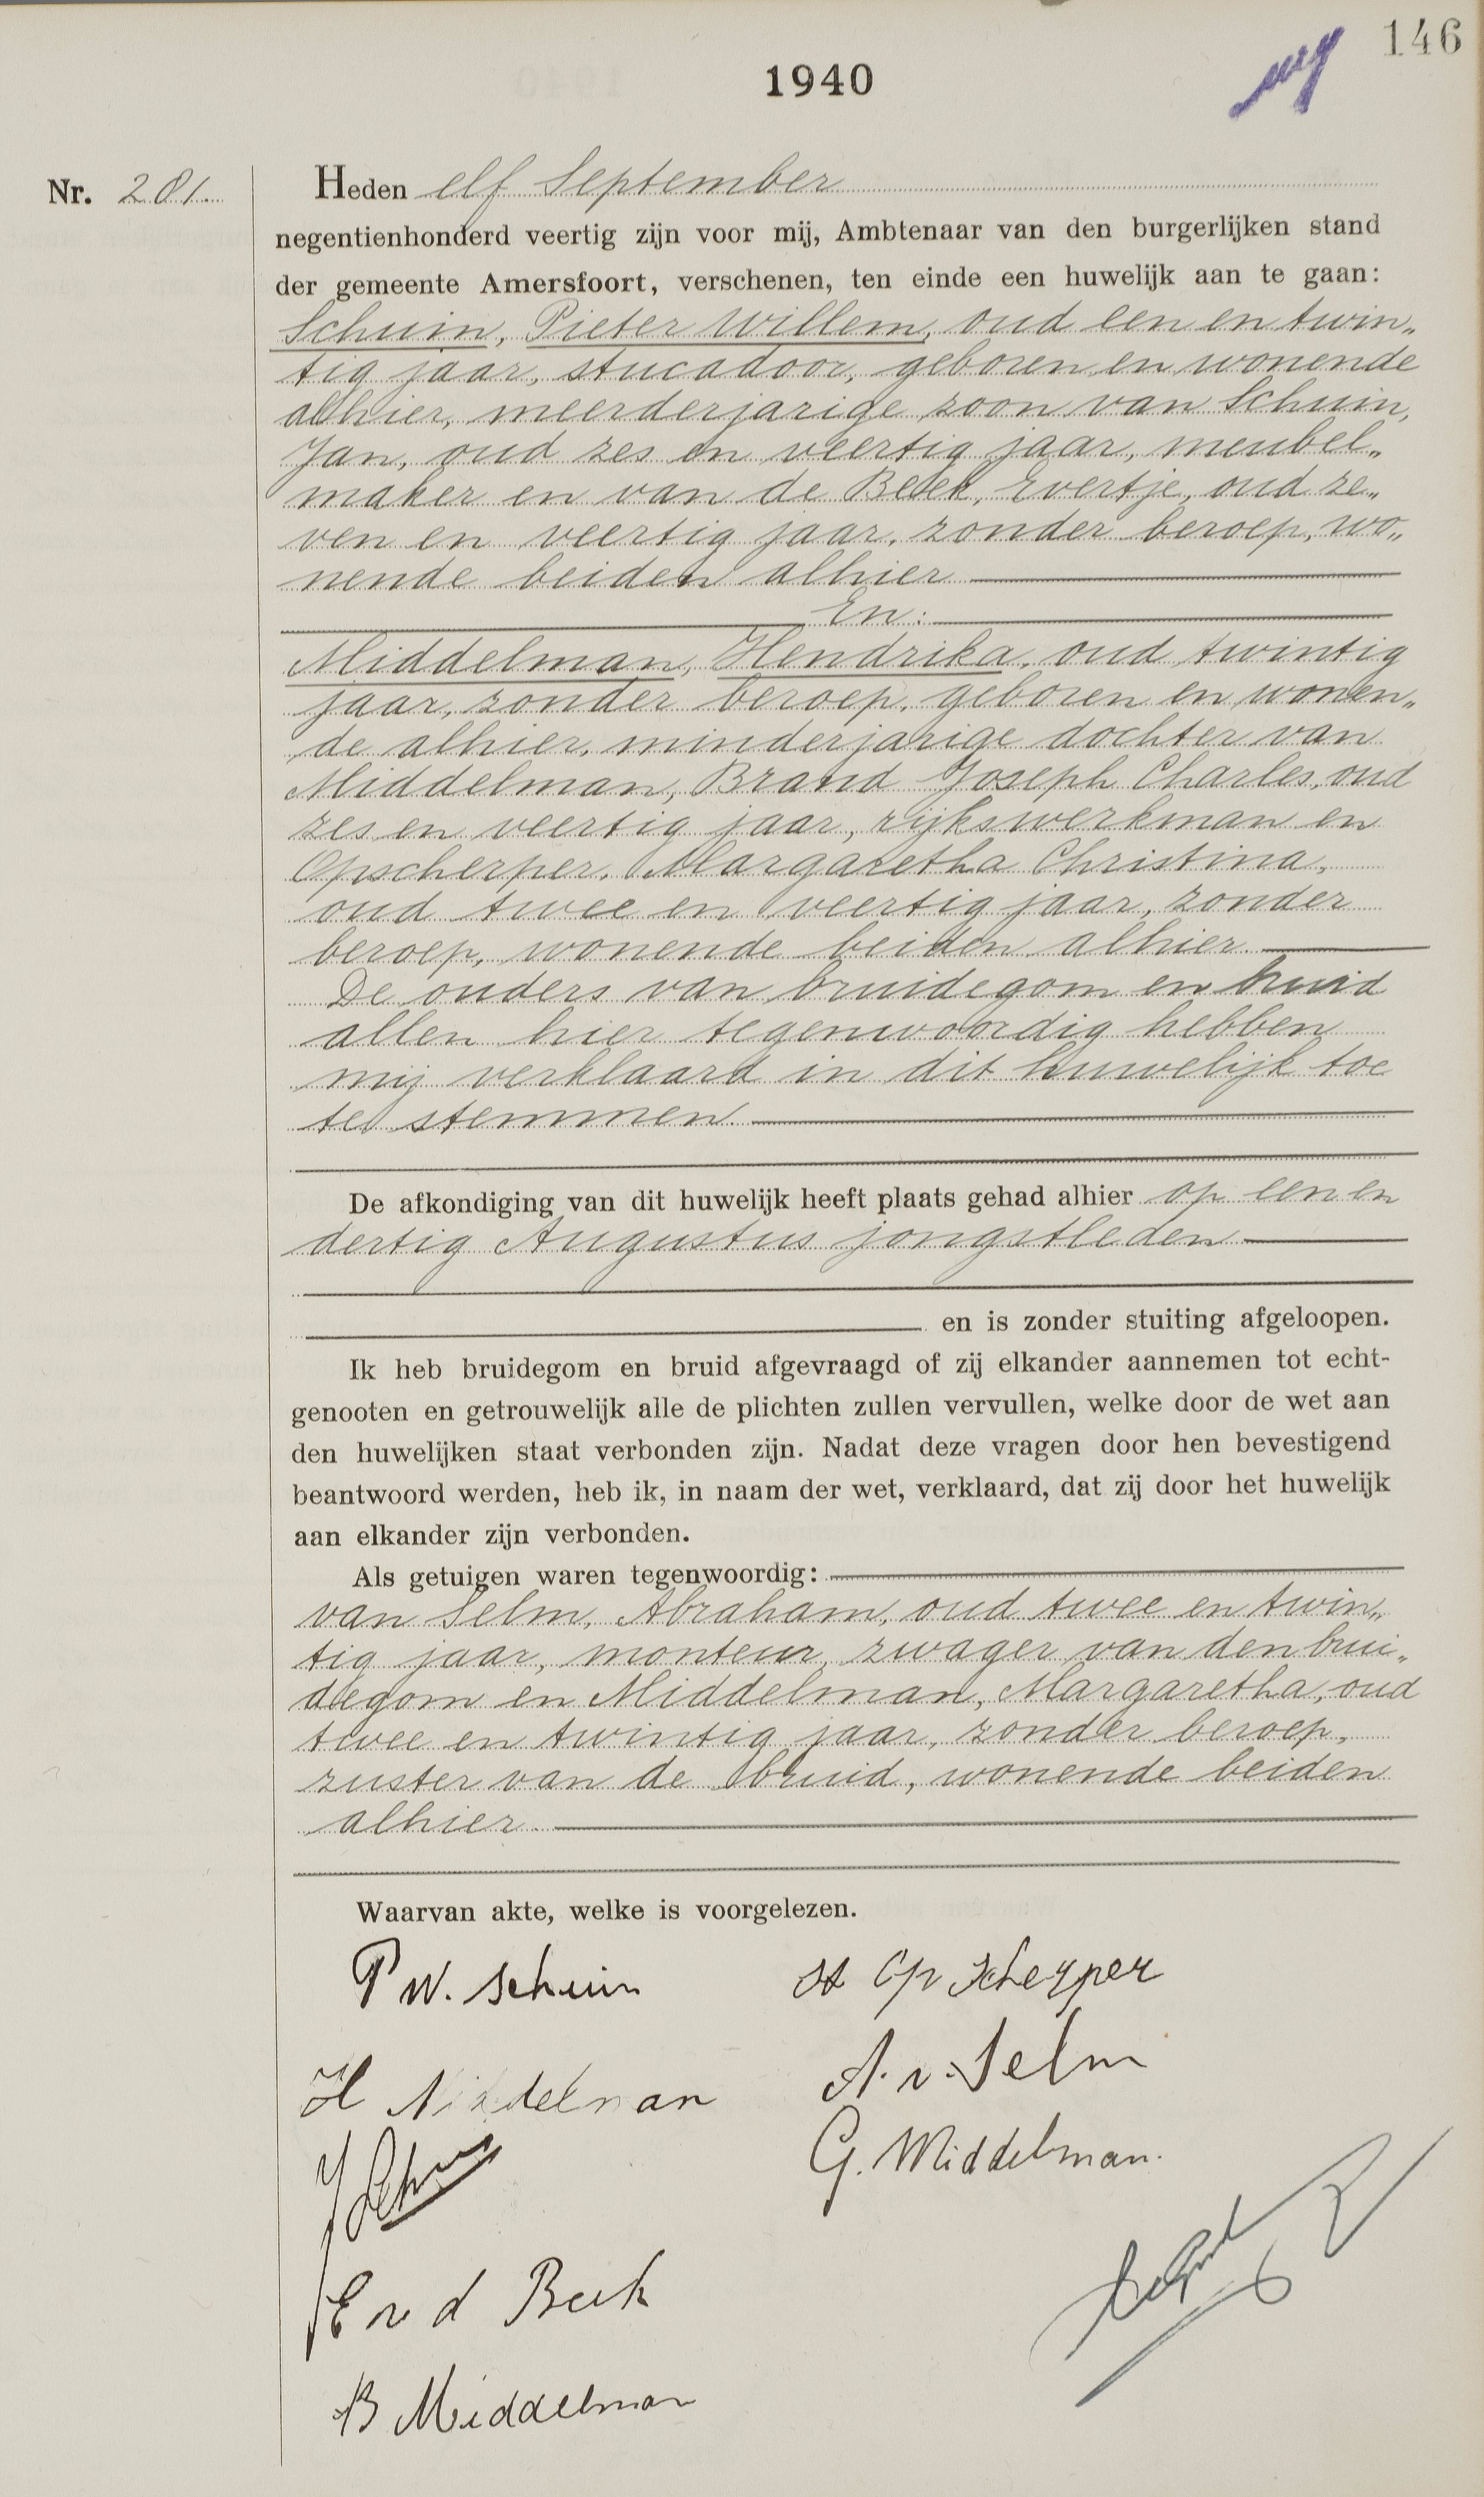 146
1940
Nr. 281.
Heden elf September
negentienhonderd veertig zijn voor mij, Ambtenaar van den burgerlijken stand
der gemeente Amersfoort, verschenen, ten einde een huwelijk aan te gaan:
Schuin, Pieter Willem, oud een en twin„
tig jaar, stucadoor, geboren en wonende
alhier, meerderjarige zoon van Schuin,
Jan, oud zes en veertig jaar, meubel„
maker en van de Beek, Evertje, oud ze„
ven en veertig jaar, zonder beroep, wo„
nende beiden alhier
En:
Middelman, Hendrika, oud twintig
jaar, zonder beroep, geboren en wonen„
de alhier, minderjarige dochter van
Middelman, Brand Joseph Charles, oud
zes en veertig jaar, rijkswerkman en
Opscherper, Margaretha Christina,
oud twee en veertig jaar, zonder
beroep, wonende beiden alhier.
De ouders van bruidegom en bruid
allen hier tegenwoordig hebben
mij verklaard in dit huwelijk toe
te stemmen.
De afkondiging van dit huwelijk heeft plaats gehad alhier op een en
dertig Augustus jongstleden
en is zonder stuiting afgeloopen.
Ik heb bruidegom en bruid afgevraagd of zij elkander aannemen tot echt-
genooten en getrouwelijk alle de plichten zullen vervullen, welke door de wet aan
den huwelijken staat verbonden zijn. Nadat deze vragen door hen bevestigend
beantwoord werden, heb ik, in naam der wet, verklaard, dat zij door het huwelijk
aan elkander zijn verbonden.
Als getuigen waren tegenwoordig:
van Selm, Abraham, oud twee en twin„
tig jaar, monteur, zwager van den brui„
degom en Middelman, Margaretha, oud
twee en twintig jaar, zonder beroep,
zuster van de bruid, wonende beiden
alhier.
Waarvan akte, welke is voorgelezen.
P W. Schuin
Op Scherper
H Middelman
A. v. Selm
G. Middelman.
E v d Beek
B Middelman